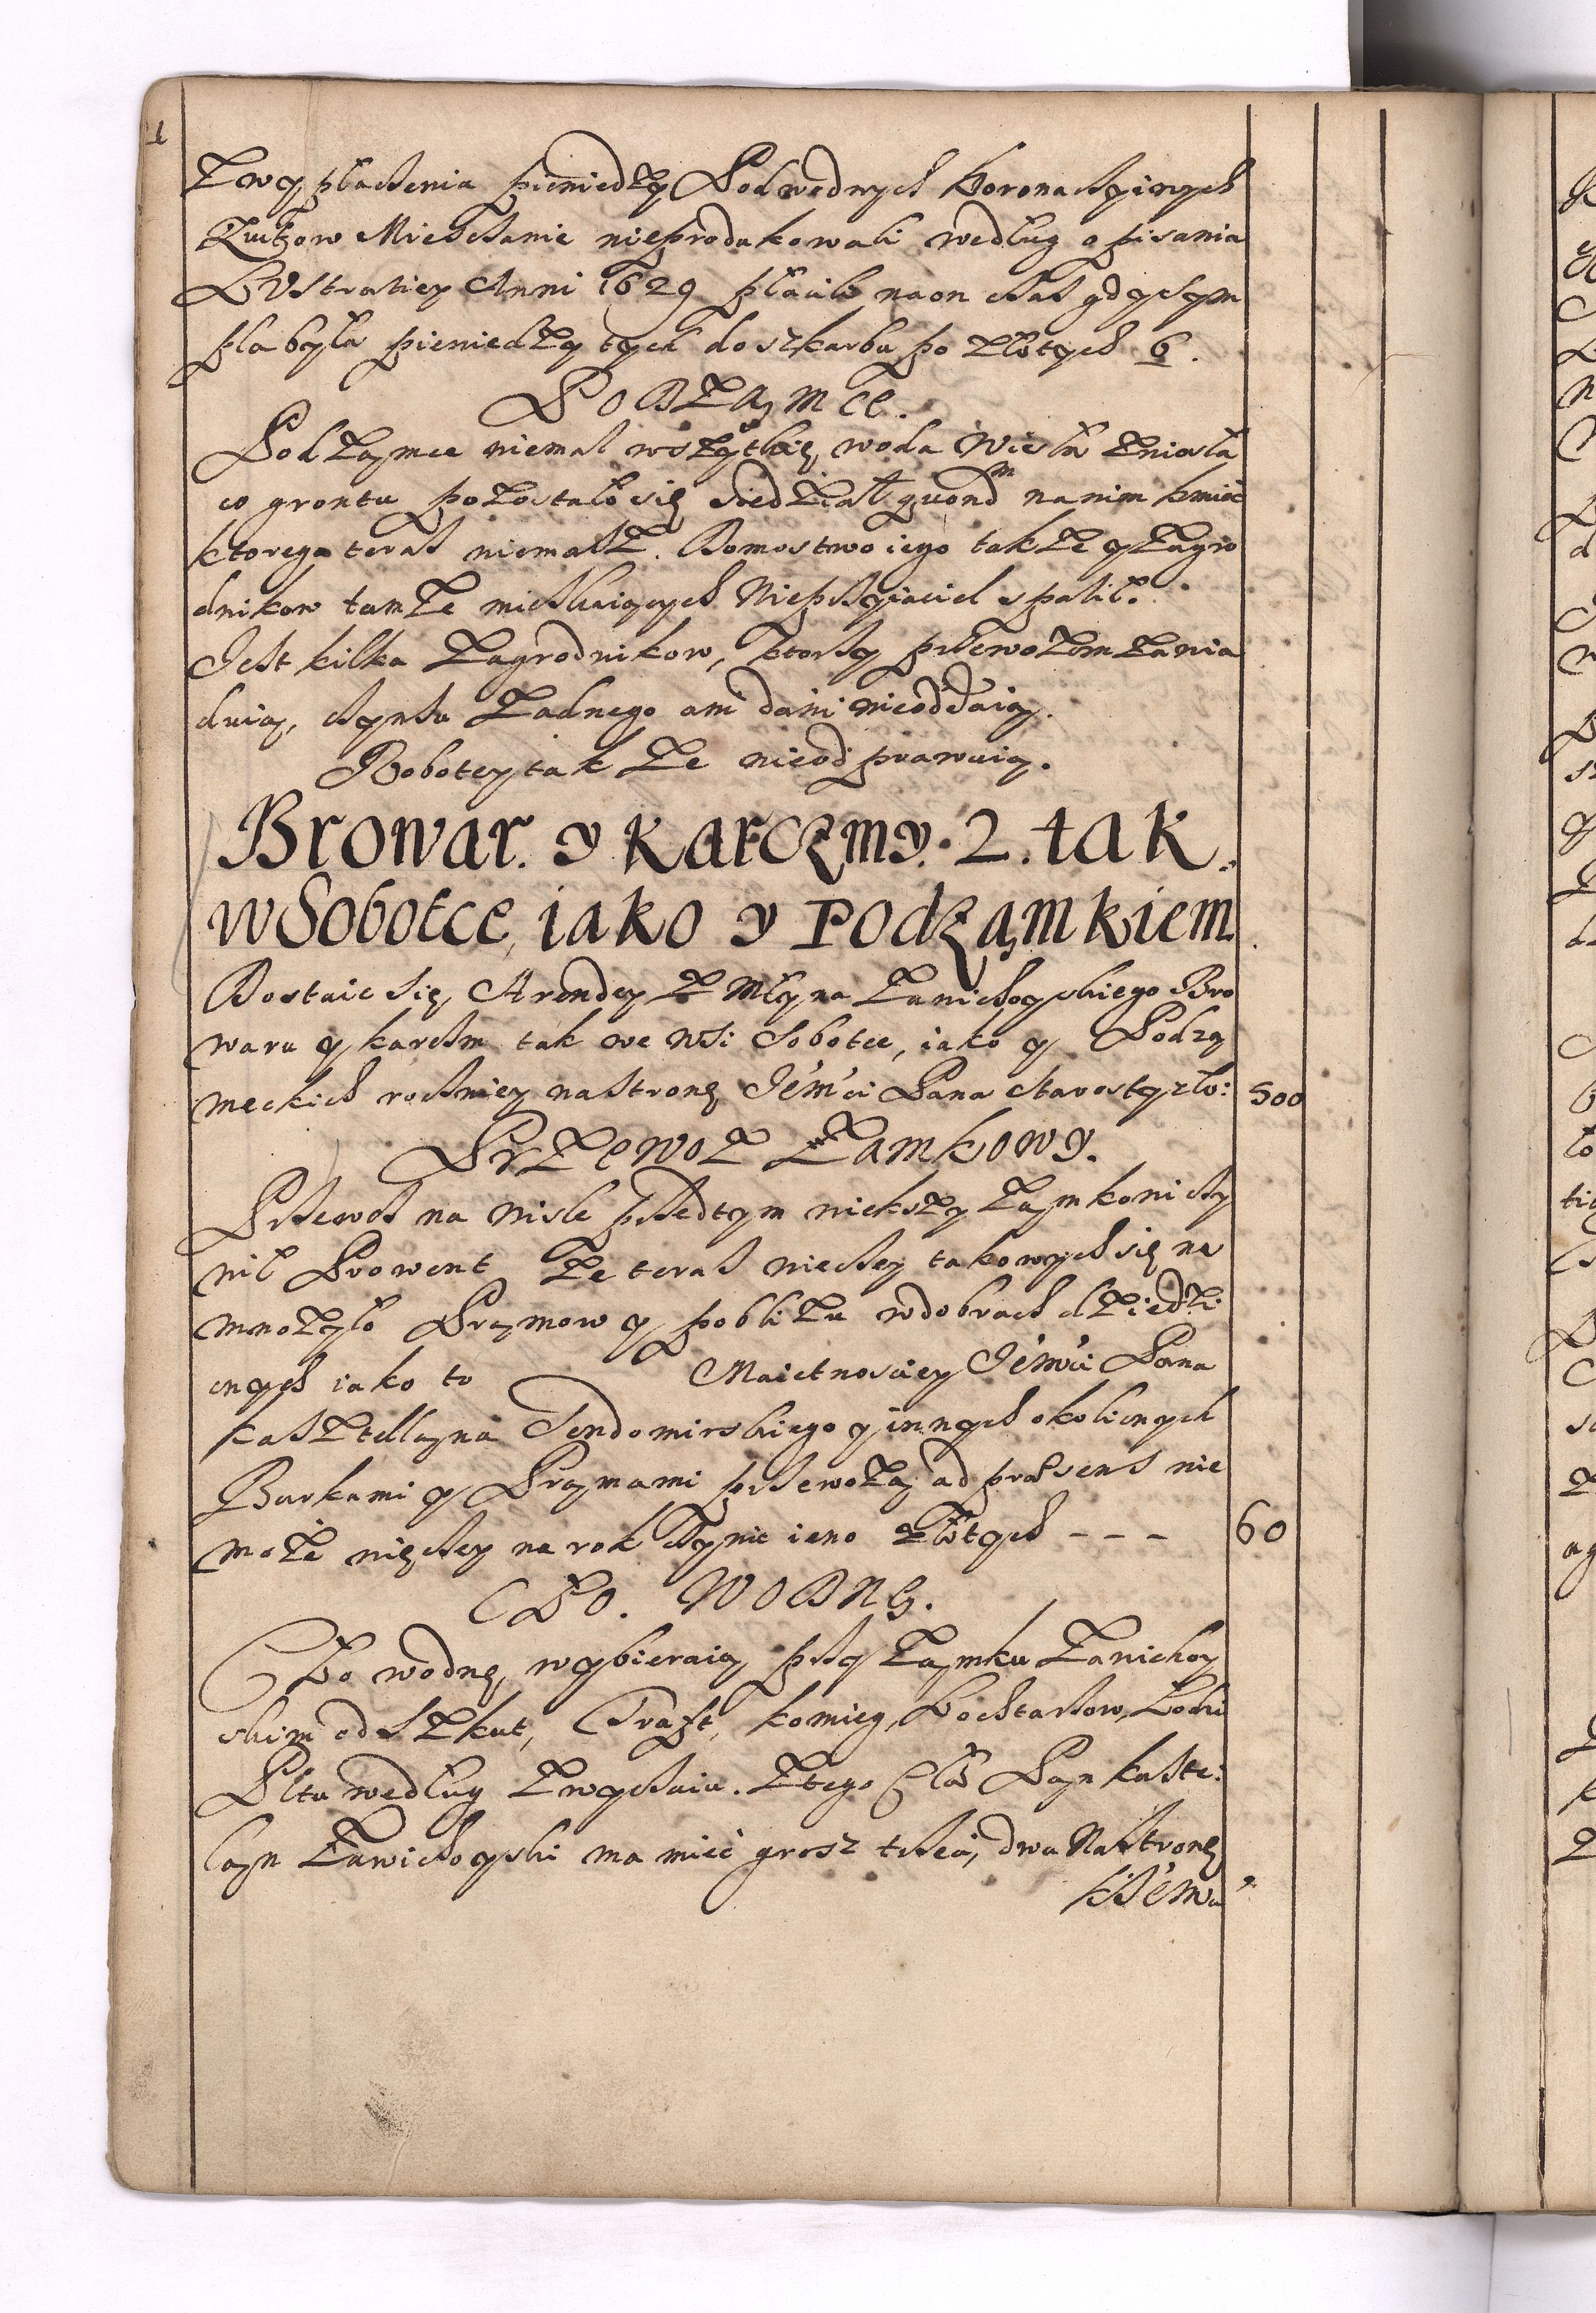 Zwypłaczenia pieniędzy Podwodnych koronaczyinych
Kwitow Miesczanie nieprodukowali według opisania
LVstratiey Anni 1629 płacili naon czas gdy sym
pla była pieniedzy tych do szkarbu po złotych 6.
PODZAMCE.
Podzamcze niemal wszytkie woda Wisła zniosła
co grontu pozostało się siedział quondm na nim kmiec
ktorego teras niemasz. Domostwo iego takze y zagro
dnikow tamze mieszkaiących Nieprzyiaciel spalił.
Jest kilka Zagrodnikow, ktorzy przewozem zawia
duią, czynszu Zadnego ani dani nieoddaią.
Robotey tak ze nieodprawuią.
Browar. y karczmy. 2. tak.
w Sobotce, iako y Podzamkiem.
Dostaie się Arendey z Młyna Zawichoyskiego Bro
waru y karczm tak we wsi Sobotce, iako y Podzą
meckich roczniey na stronę Jémci Pana Starosty zło: 500
Przewoz Zamkowy.
Przewos na Wisle przedtym wiekszy zamkowi czy
nił Prowent Ze teras wiecey takowych się na
mnozyło Prąmow y poblizu w dobrach dziedzi
cnych iako to Maietnosciey Jémci Pana
kasztellana Sendomirskiego y innych okolicnych
Barkami y Prąmami przewozą, ad præsens nie
moze więcey na rok czynic ieno złotych - - - 60
CŁO. WODNE.
Cło wodne, wybieraią przy Zamku Zawichoy
skim od Szkut, Traft, komieg, Łodzi
Pltu według Zwyczaiu. Z tego Cła Pan kaste:
lan Zawichoyski ma mieć grosz trzeci, dwa Na stronę
kJémci